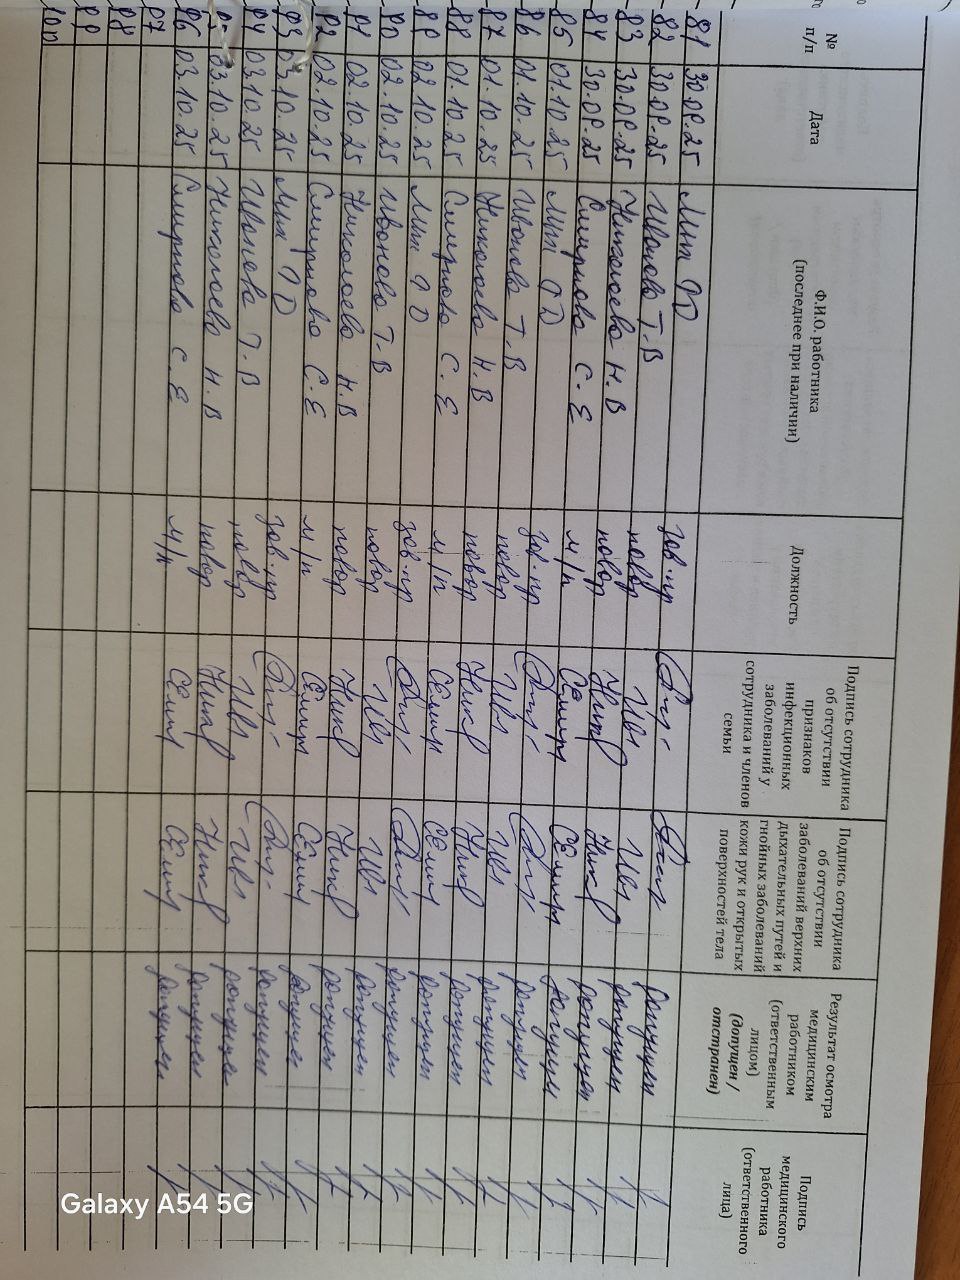 № п/п
Дата
Ф.И.О. работника
(последнее при наличии)
Должность
Подпись сотрудника
об отсутствии
признаков
инфекционных
заболеваний у
сотрудника и членов
семьи
Подпись сотрудника
об отсутствии
заболеваний верхних
дыхательных путей и
гнойных заболеваний
кожи рук и открытых
поверхностей тела
Результат осмотра
медицинским
работником
(ответственным
лицом)
(допущен /
отстранен)
Подпись
медицинского
работника
(ответственного
лица)
81 30.09.25 зав.пр допущен
82 30.09.25 Иванова Т.В повар Ив допущен
83 30.09.25 Николаева Н.В повар Ник допущен
84 30.09.25 Смирнова С.Е м/п допущен
85 01.10.25 зав.пр допущен
86 01.10.25 Иванова Т.В повар Ив допущен
87 01.10.25 Николаева Н.В повар Ник допущен
88 01.10.25 Смирнова С.Е м/п допущен
89 02.10.25 зав.пр допущен
90 02.10.25 Иванова Т.В повар Ив допущен
91 02.10.25 Николаева Н.В повар Ник допущен
92 02.10.25 Смирнова С.Е м/п допущен
93 03.10.25 зав.пр допущен
94 03.10.25 Иванова Т.В повар Ив допущен
95 03.10.25 Николаева Н.В повар Ник допущен
96 03.10.25 Смирнова С.Е м/п допущен
97
98
99
100
Galaxy A54 5G